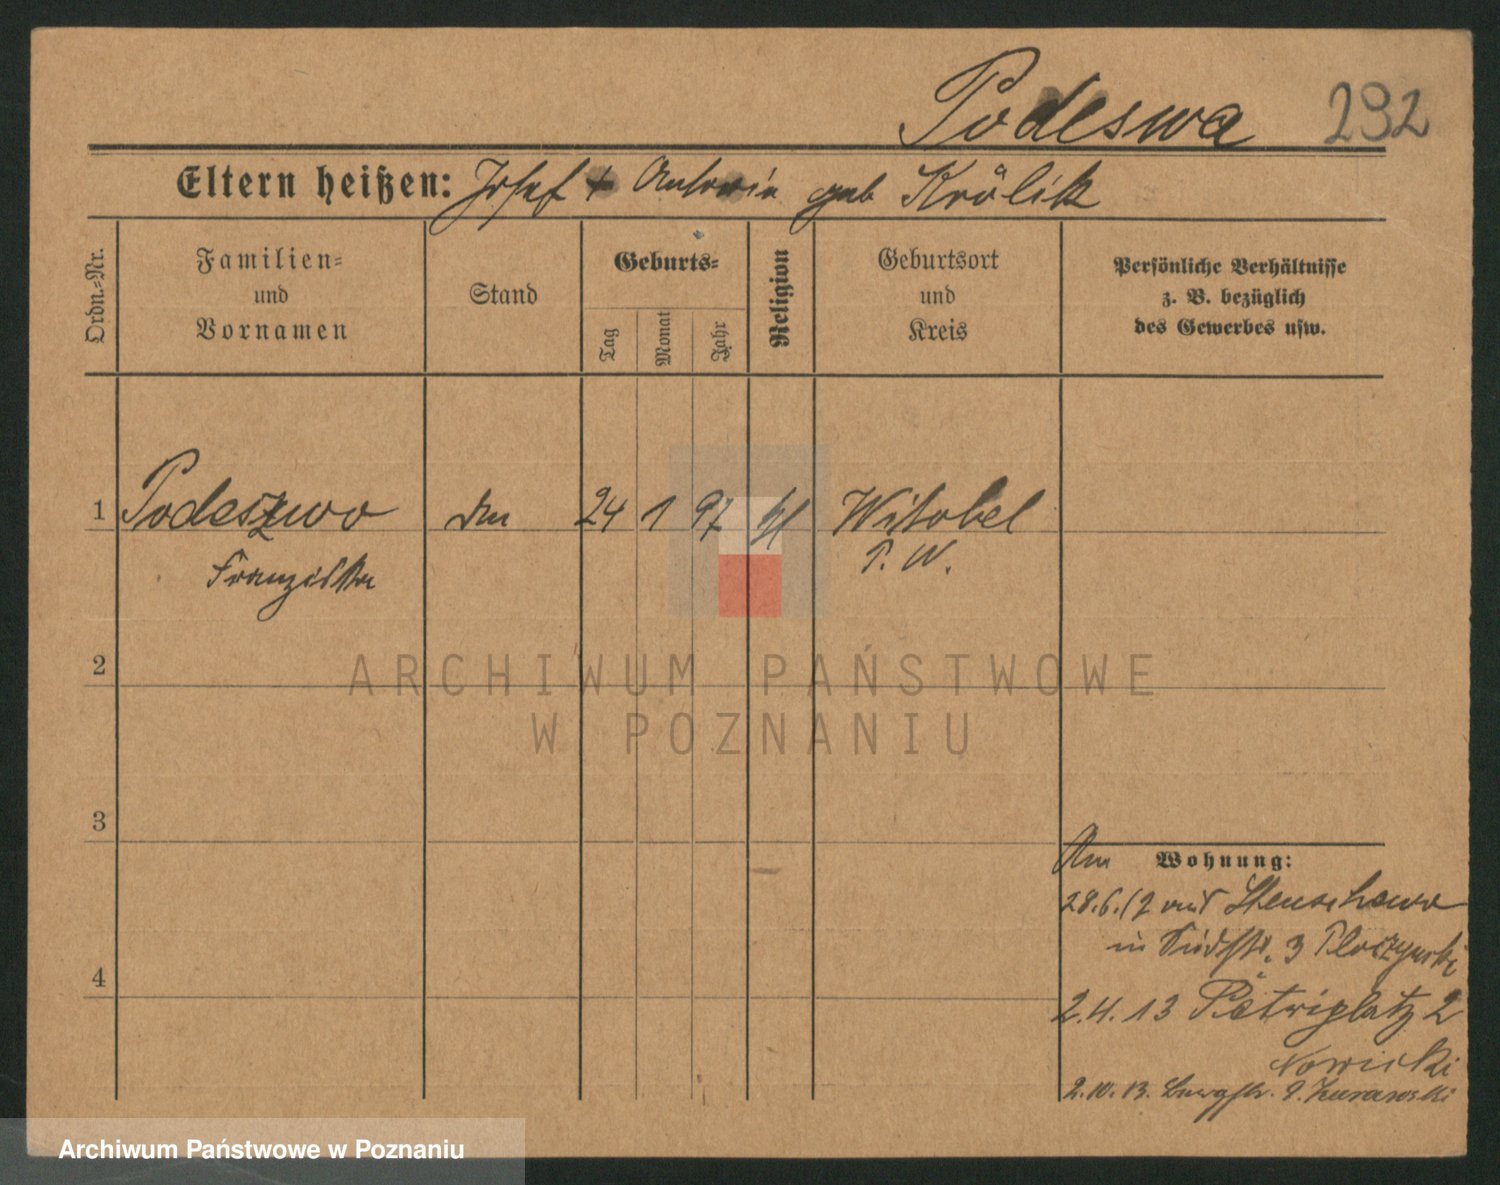 Podeswa 292
Eltern heißen: Josef + Antonie geb Królik
Ordn.-Nr.
Familien-
und
Vornamen
Stand
Geburts-
Tag
Monat
Jahr
Religion
Geburtsort
und
Kreis
Persönliche Verhältnisse
z. B. bezüglich
des Gewerbes usw.
1 Podeszwo 24 1 97 kl Witobel
Franziska P. W.
2
3
4
Am Wohnung:
28.6.12 aus Stenschewo
in Südstr. 3
2.4.13 Petriplatz 2
Nowicki
2.10.13.
ARCHIWUM PAŃSTWOWE
W POZNANIU
Archiwum Państwowe w Poznaniu